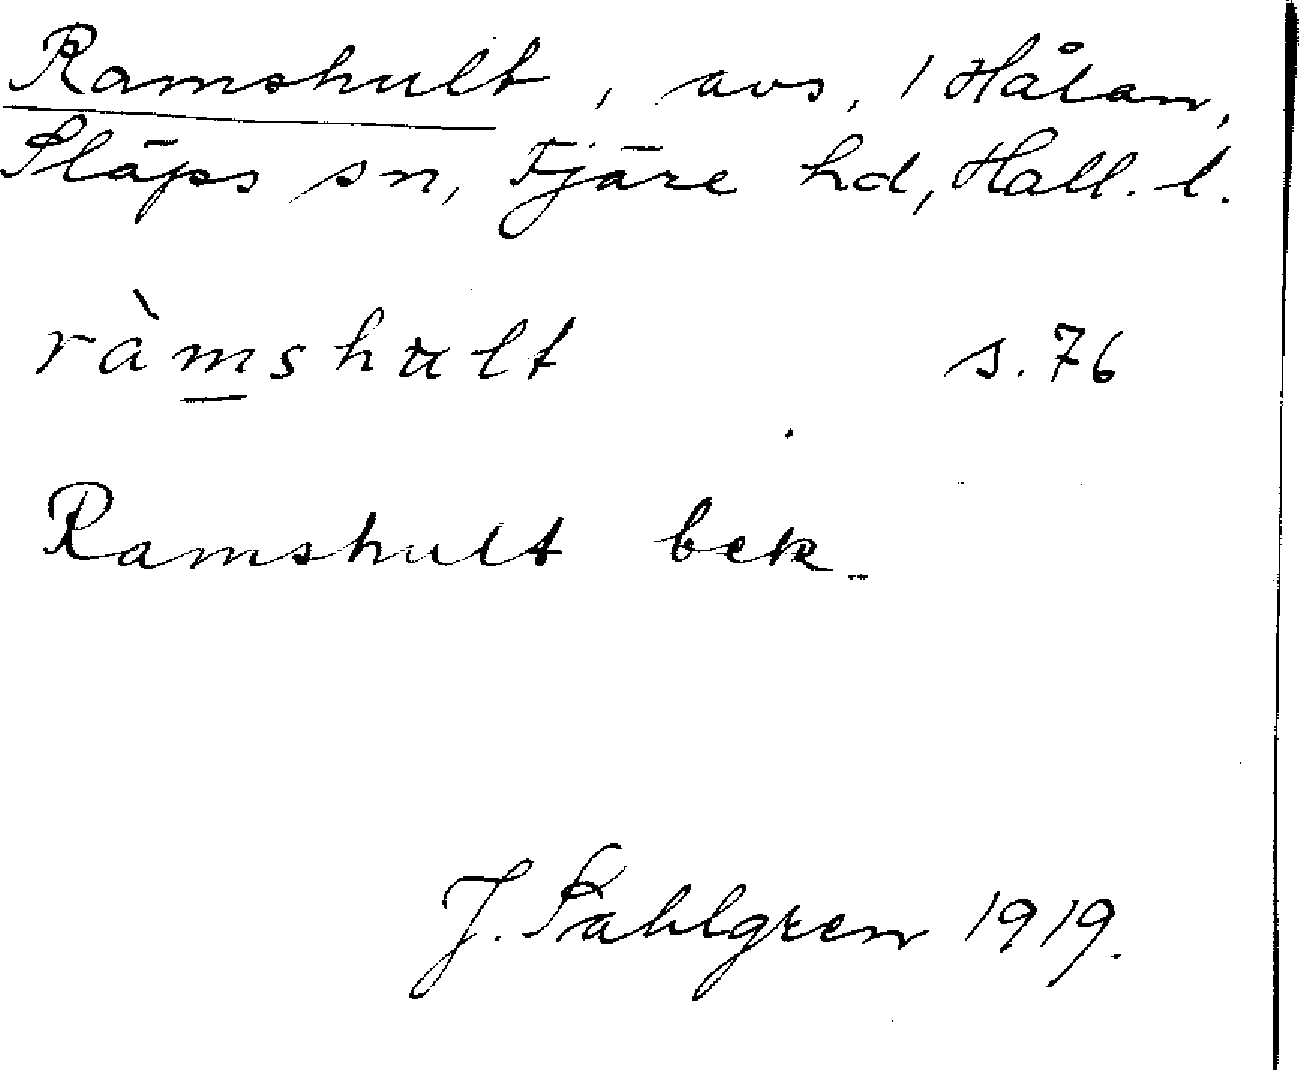 Ramshult, avs, 1 Hålan,
Släps sn, Fjäre hd, Hall. l.
ràmshult s. 76
Ramshult bek.
J. Sahlgren 1919.